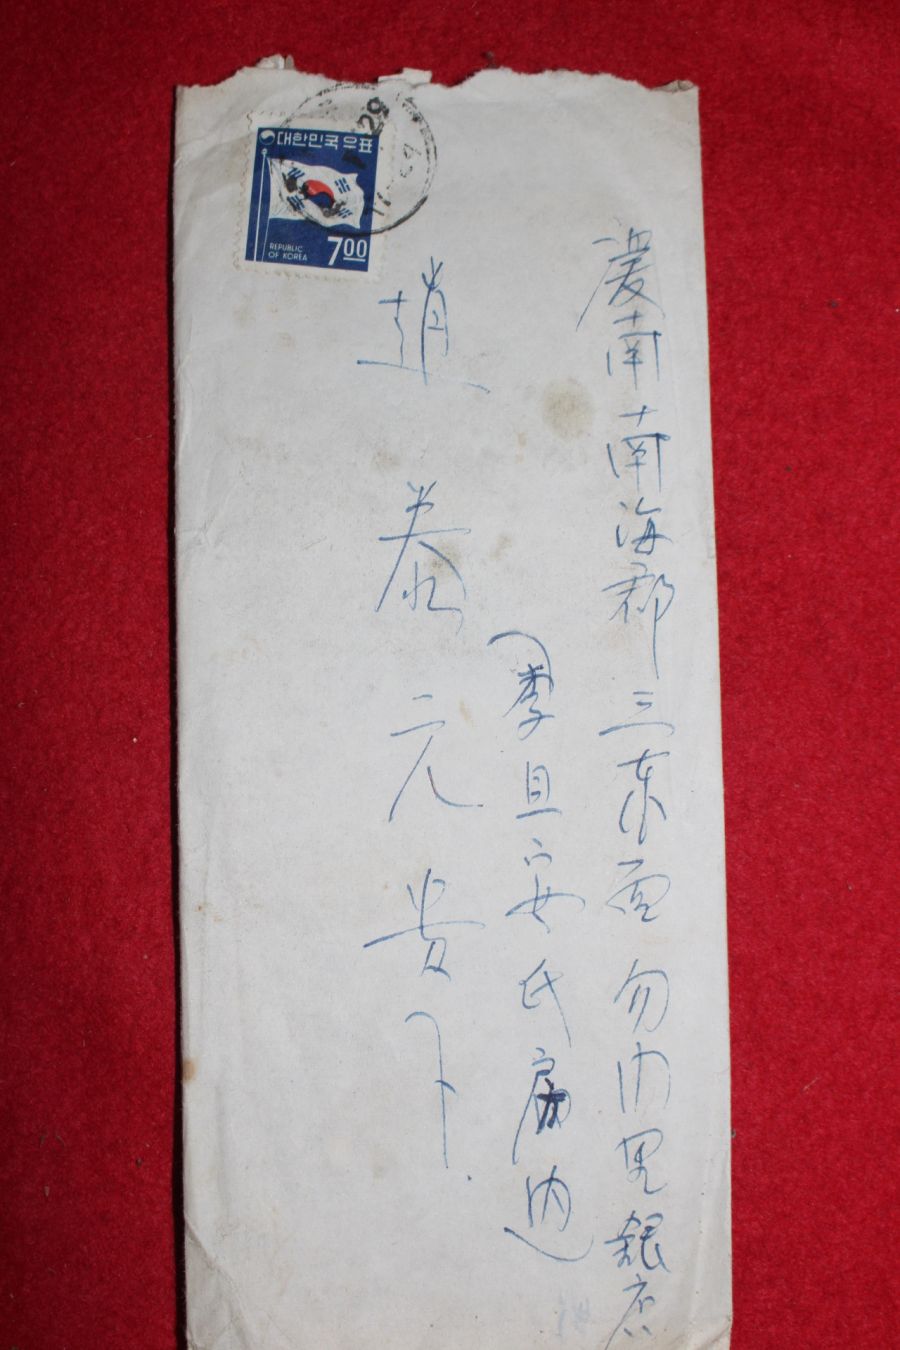 대한민국우표
REPUBLIC
OF KOREA
7.00
29
慶南南海郡三東面勿巾里銀店
李且妥氏
趙泰元貴下